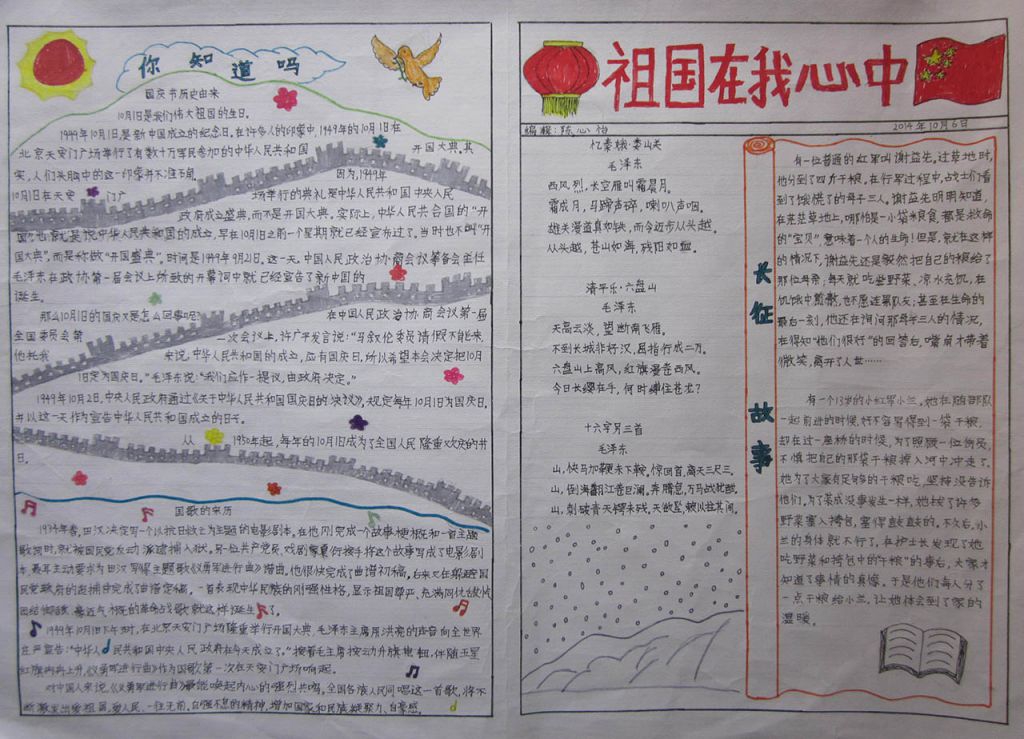 你知道吗
国庆节历史由来
10月1日是我们伟大祖国的生日。
1949年10月1日是新中国成立的纪念日。在许多人的印象中,1949年的10月1日在
北京天安门广场举行了有数十万军民参加的中华人民共和国 开国大典。其
实,人们头脑中的这一印象并不准确 因为,1949年
10月1日在天安 门广 场举行的典礼是中华人民共和国中央人民
政府成立盛典,而不是开国大典。实际上,中华人民共合国的“开
国”也就是说中华人民共和国的成立,早在10月1日之前一个星期就已经宣布过了。当时也不叫“开
国大典”,而是称做“开国盛典”,时间是1949年9月21日。这一天,中国人民政治协商会议筹备会主任
毛泽东在政协第一届会议上所致的开幕词中就已经宣告了新中国的
诞生。
那么10月1日的国庆又是怎么回事呢? 在中国人民政治协商会议第一届
全国委员会第 一次会议上,许广平发言说:“马叙伦委员请假不能来,
他托我 来说,中华人民共和国的成立,应有国庆日,所以希望本会决定把10月
1日定为国庆日。”毛泽东说:“我们应作一提议,由政府决定。”
1949年10月2日,中央人民政府通过《关于中华人民共和国国庆日的决议》,规定每年10月1日为国庆日,
并以这一天作为宣告中华人民共和国成立的日子。
从 1950年起,每年的10月1日成为了全国人民隆重欢庆的节
日。
国歌的来历
1934年春,田汉决定写一个以抗日救亡为主题的电影剧本。在他刚完成一个故事梗概和一首主题
歌词时,就被国民党反动派逮捕入狱。另一位共产党员、戏剧家夏衍接手将这个故事写成了电影剧
本,聂耳主动要求为田汉写得主题歌《义勇军进行曲》谱曲。他很快完成了曲谱初稿,后来又在躲避国
民党政府的追捕中完成了曲谱定稿。一首表现中华民族的刚强性格,显示祖国尊严
的革命战歌就这样诞生了。
1949年10月1日下午3时,在北京天安门广场隆重举行开国大典,毛泽东主席用洪亮的声音向全世界
庄严宣告:“中华人民共和国中央人民政府在今天成立了。”按着毛主席按动升旗电钮,伴随五星
红旗冉冉上升,《义勇军进行曲》作为国歌第一次在天安门广场响起。
对中国人来说,《义勇军进行曲》最能唤起内心的强烈共鸣,全国各族人民同唱这一首歌,将不
断激发出爱祖国,爱人民、一往无前、自强不息的精神,增加国家和民族凝聚力、自豪感。
祖国在我心中
编辑:陈心怡 2014年10月6日
忆秦娥·娄山关
毛泽东
西风烈,长空雁叫霜晨月。
霜成月,马蹄声碎,喇叭声咽。
雄关漫道真如铁,而今迈步从头越。
从头越,苍山如海,残阳如血。
清平乐·六盘山
毛泽东
天高云淡,望断南飞雁。
不到长城非好汉,屈指行成二万。
六盘山上高风,红旗漫卷西风。
今日长缨在手,何时缚住苍龙?
十六字另三首
毛泽东
山,快马加鞭未下鞍,惊回首,离天三尺三。
山,倒海翻江卷巨澜,奔腾急,万马战犹酣。
山,刺破青天锷未残,天欲坠,赖以拄其间。
长征故事
有一位普通的红军叫谢益先。过草地时,
他分到了四斤干粮。在行军过程中,战士们看
到了饿慌了的母子三人。谢益先明明知道,
在茫茫草地上,哪怕是一小袋粮食,都是救命
的“宝贝”,意味着一个人的生命!但是,就在这样
的情况下,谢益先还是毅然把自己的粮给了
那位母亲;每天就吃些野菜、凉水充饥,在
饥饿中煎熬,也不愿连累队友;甚至在生命的
最后一刻,他还在询问那母子三人的情况,
在得知“他们很好”的回答后,嘴角才带着
微笑,离开了人世……
有一个13岁的小红军小兰。她在随部队
一起前进的时候,好不容易得到一袋干粮,
却在过一座桥的时候,为了照顾一位伤员,
不慎把自己的那袋干粮掉入河中冲走了。
她为了大家有足够的干粮吃,坚持没告诉
他们。为了装成没事发生一样,她拔了许多
野菜塞入挎包,塞得鼓鼓的。不久后,小
兰的身体就不行了。在护士长发现了她
吃野菜和挎包中的“干粮”的事后,大家才
知道了事情的真像。于是他们每人分了
一点干粮给小兰,让她体会到了家的
温暖。